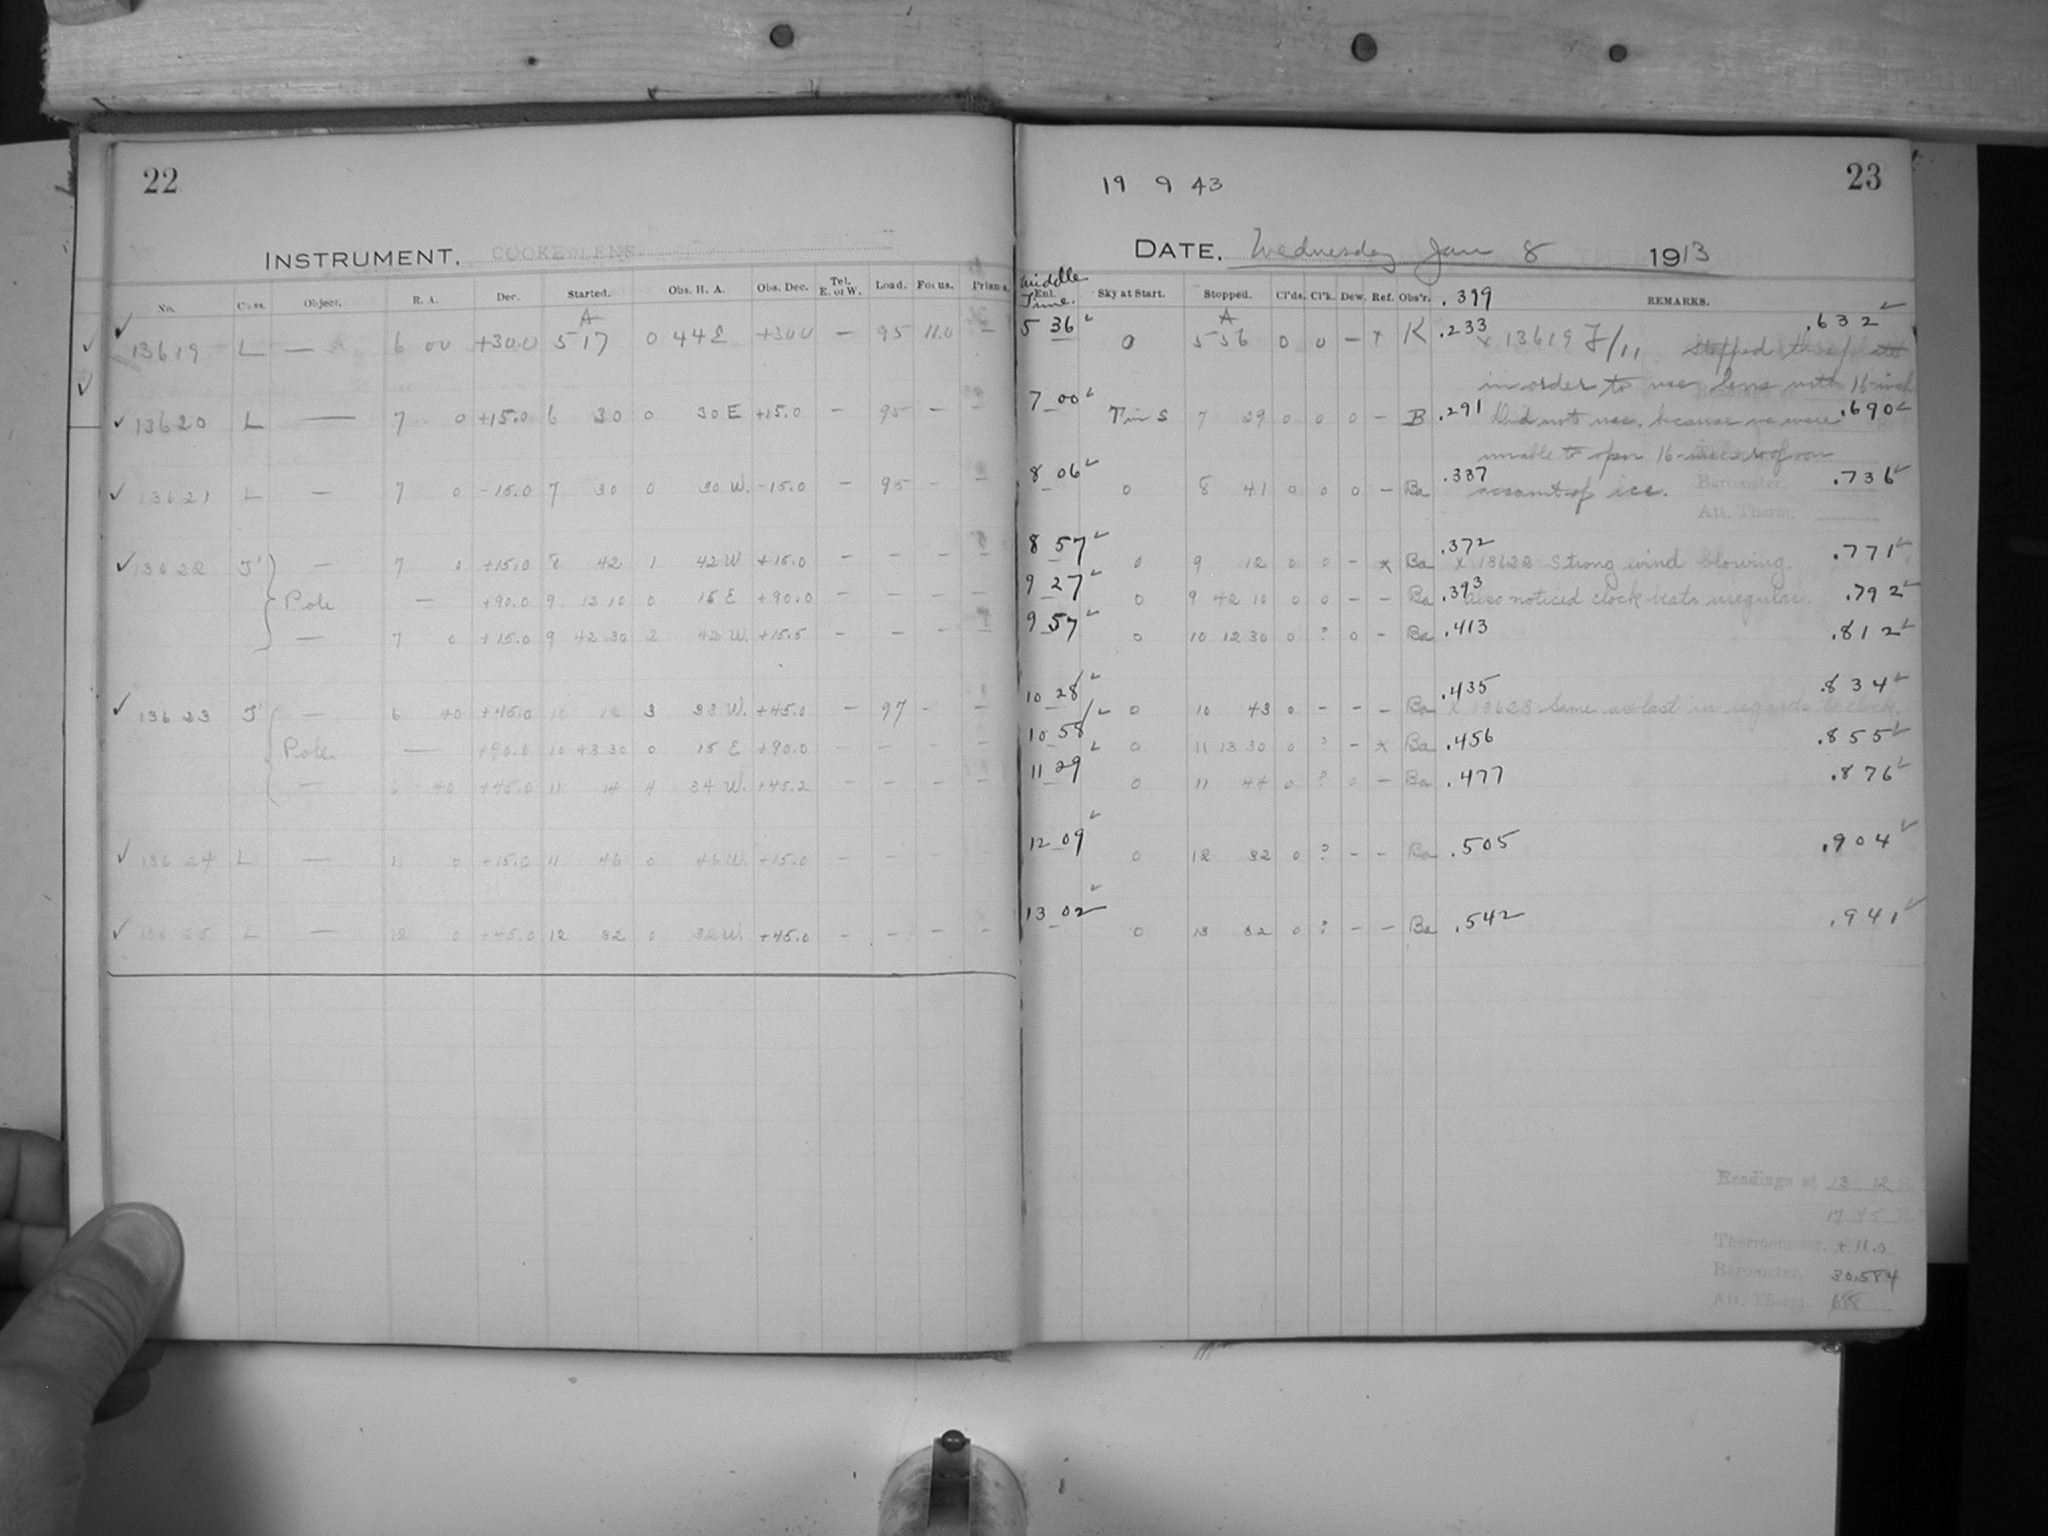 22
INSTRUMENT. COOKE LENS.
No. Class. Object. R. A. Dec. Started. Obs. H. A. Obs. Dec. Tel. E. or W. Load. Focus. Prisms.
A
13619 L — 6 00 +30.0 5 17 0 44 E +30.0 — 95 11.0 —
13620 L — 7 0 +15.0 6 30 0 30 E +15.0 — 95 — —
13621 L — 7 0 -15.0 7 30 0 30 W. -15.0 — 95 — —
13622 — 7 0 +15.0 8 42 1 42 W +15.0 — — — —
Pole — +90.0 9 12 10 0 15 E +90.0 — — — —
— 7 0 +15.0 9 42 30 2 42 W. +15.5 — — — —
13623 — 6 40 +45.0 10 12 3 33 W. +45.0 — 97 — —
Pole — +90.0 10 43 30 0 15 E +90.0 — — — —
— 6 40 +45.0 11 14 4 34 W. +45.2 — — — —
13624 L — 11 0 +15.0 11 46 0 46 W. +15.0 — — — —
13625 L — 12 0 +45.0 12 32 0 32 W. +45.0 — — — —
23
19 9 43
DATE. Wednesday Jan 8 1913
Middle Time. Enl. Sky at Start. Stopped. Cl'ds. Cl'k. Dew. Ref. Obs'r. .399 REMARKS.
A
5 36 0 5 56 0 0 — x K .233 x 13619 F/11 Stopped this plate .632
in order to use lens with 16-inch
7 00 7 29 0 0 0 — B .291 Did not use, because we were .690
unable to open 16-inch roof on
8 06 0 8 41 0 0 0 — Ba .337 account of ice. .736
8 57 0 9 12 0 0 — x Ba .372 x 13622 Strong wind blowing. .771
9 27 0 9 42 10 0 0 — — Ba .393 also noticed clock beats irregular. .792
9 57 0 10 12 30 0 ? 0 — Ba .413 .812
10 28 0 10 43 0 — — — Ba .435 x 13623 Same as last in regards to clock. .834
10 58 0 11 13 30 0 ? — x Ba .456 .855
11 29 0 11 44 0 ? 0 — Ba .477 .876
12 09 0 12 32 0 ? — — Ba .505 .904
13 02 0 13 32 0 ? — — Ba .542 .941
Readings at 13 12
Thermometer. + 11.0
Barometer. 30.584
Att. Therm.